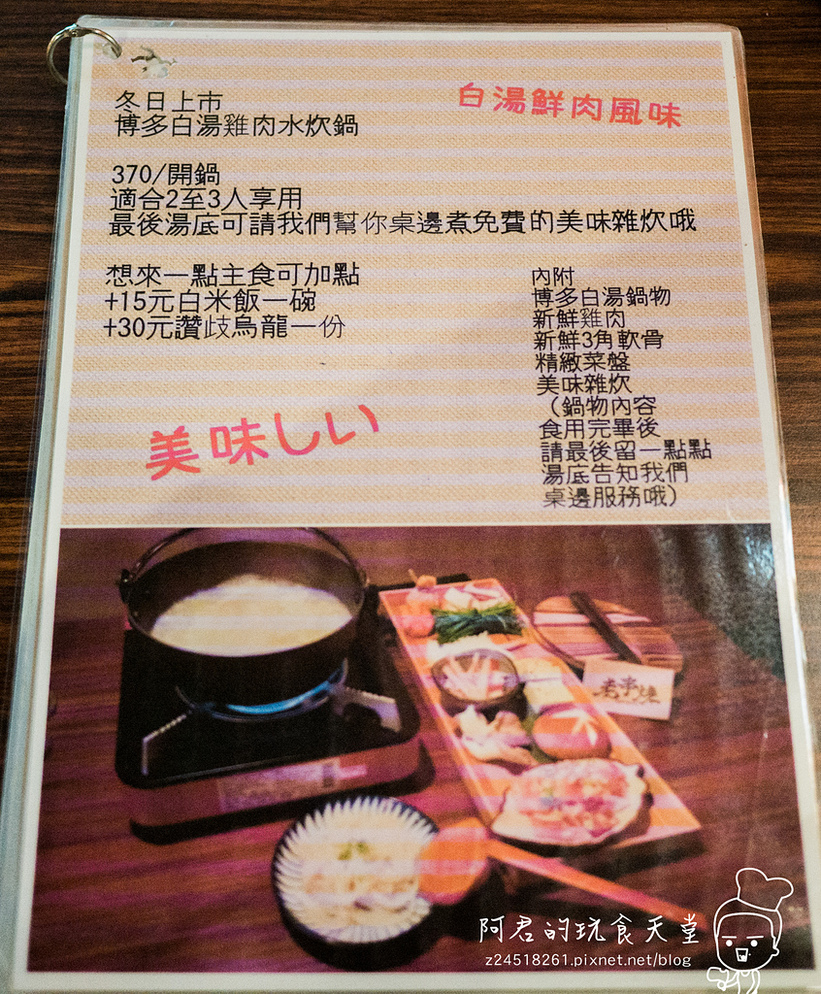 白湯鮮肉風味
冬日上市
博多白湯雞肉水炊鍋
370/開鍋
適合2至3人享用
最後湯底可請我們幫你桌邊煮免費的美味雜炊哦
想來一點主食可加點
+15元白米飯一碗
+30元讚歧烏龍一份
內附
博多白湯鍋物
新鮮雞肉
新鮮3角軟骨
精緻菜盤
美味雜炊
（鍋物內容
食用完畢後
請最後留一點點
湯底告知我們
桌邊服務哦）
美味しい
阿君的玩食天堂
z24518261.pixnet.net/blog